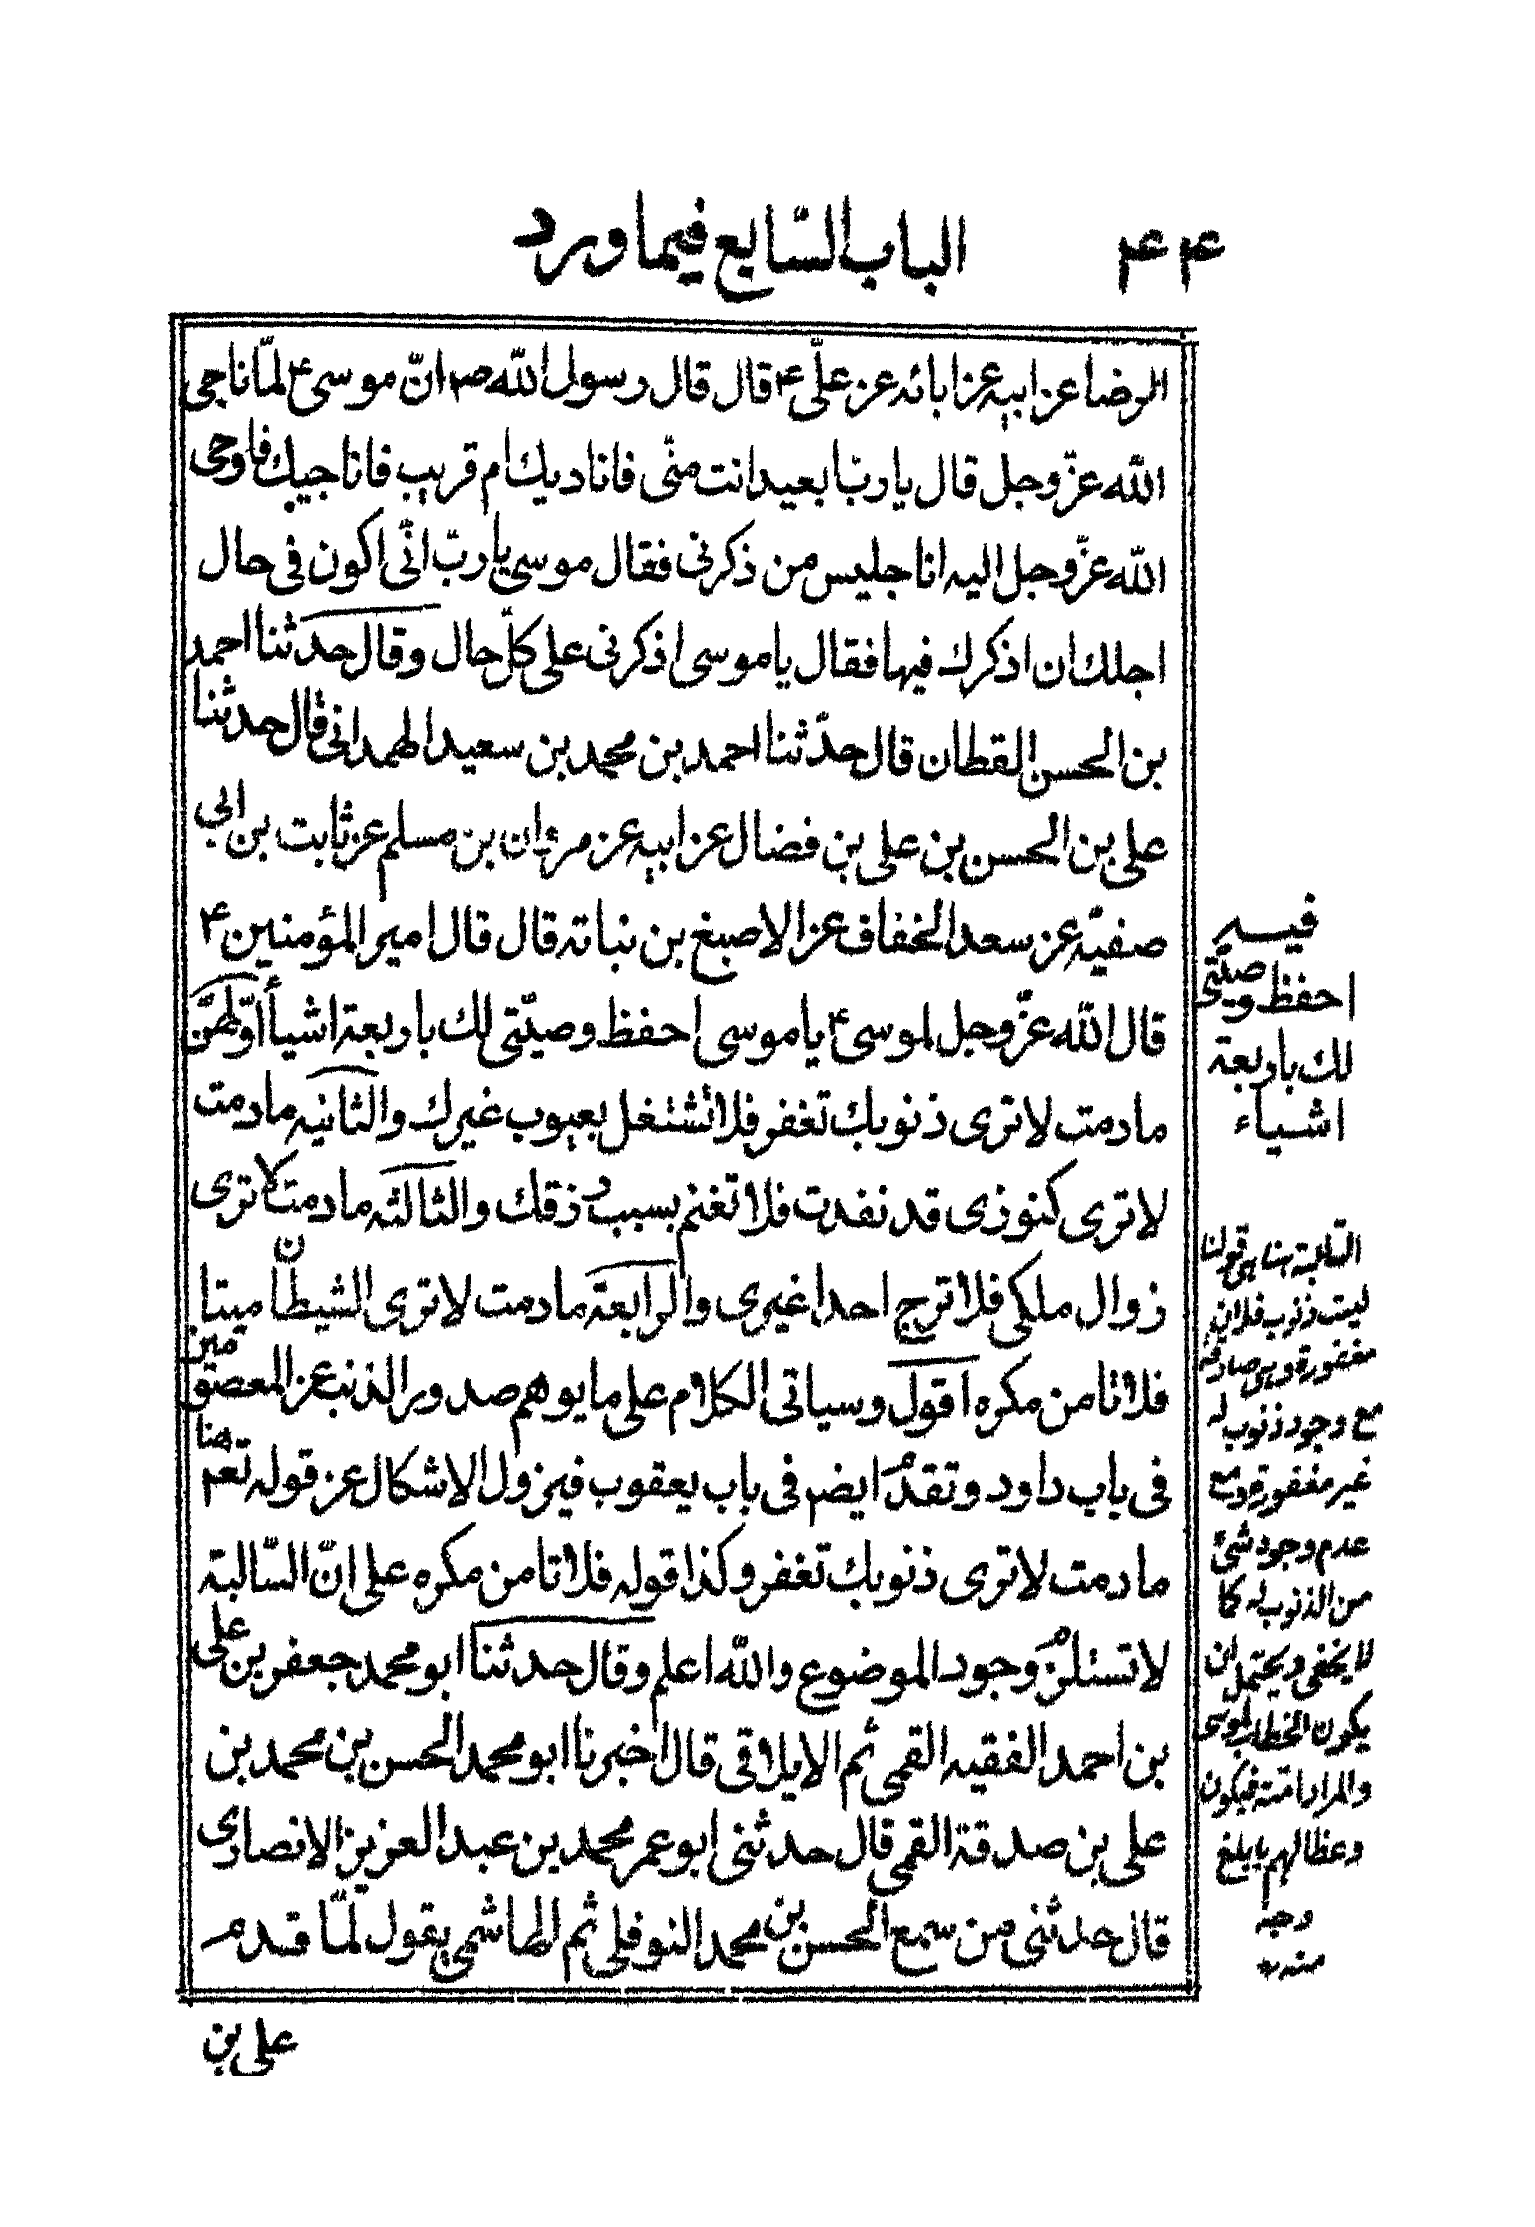 ۴۴
الباب السّابع فيما ورد
الرضا عن ابيه عن ابائه عن علّى ع قال قال رسول اللّه ص انّ موسى ع لمّا ناجى
اللّه عزّ وجل قال يا رب ابعيد انت منّى فاناديك ام قريب فاناجيك فاوحى
اللّه عزّ وجل اليه انا جليس من ذكرنى فقال موسى يا ربّ انّى اكون فى حال
اجلك ان اذكرك فيها فقال يا موسى اذكرنى على كلّ حال وقال حدثنا احمد
بن الحسن القطان قال حدّثنا احمد بن محمد بن سعيد الهمدانى قال حدثنا
على بن الحسن بن على بن فضال عن ابيه عن مروان بن مسلم عن ثابت بن ابي
صفيّه عن سعد الخفاف عن الاصبغ بن نباته قال قال امير المؤمنين ع
قال اللّه عزّ وجل لموسى ع يا موسى احفظ وصيّتى لك باربعة اشيأ اوّلهنّ
ما دمت لا ترى ذنوبك تغفر فلا تشتغل بعيوب غيرك والثانيه ما دمت
لا ترى كنوزى قد نفدت فلا تغنم بسبب رزقك والثالثه ما دمت لا ترى
زوال ملكى فلا ترج احدا غيرى والرابعة ما دمت لا ترى الشيطان ميتا
فلا تا من مكره اقول وسياتى الكلام على ما يوهم صدور الذنب عن المعصومين
فى باب داود وتقدم ايضم فى باب يعقوب فيزول الاشكال عن قوله تعم هنا
ما دمت لا ترى ذنوبك تغفر وكذا قوله فلا تا من مكره على انّ السّالبة
لا تستلزم وجود الموضوع واللّه اعلم وقال حدثنا ابو محمد جعفر بن على
بن احمد الفقيه القمى ثم الايلاقى قال اخبرنا ابو محمد الحسن بن محمد بن
على بن صدقة القمى قال حدثنى ابو عمر محمد بن عبد العزيز الانصارى
قال حدثنى من سمع الحسن بن محمد النوفلى ثم الهاشمى يقول لمّا قدم
على بن
فيه
احفظ وصيّتى
لك باربعة
اشياء
السّالبة هنا هى قولنا
ليت ذنوب فلان
مغفورة وهى صادقه
مع وجود ذنوب له
غير مغفورة ومع
عدم وجود شئ
من الذنوب له كما
لا يخفى ويحتمل ان
يكون الخطاب لموسى
والمراد امّته فيكون
وعظا لهم بابلغ
وجه
منه